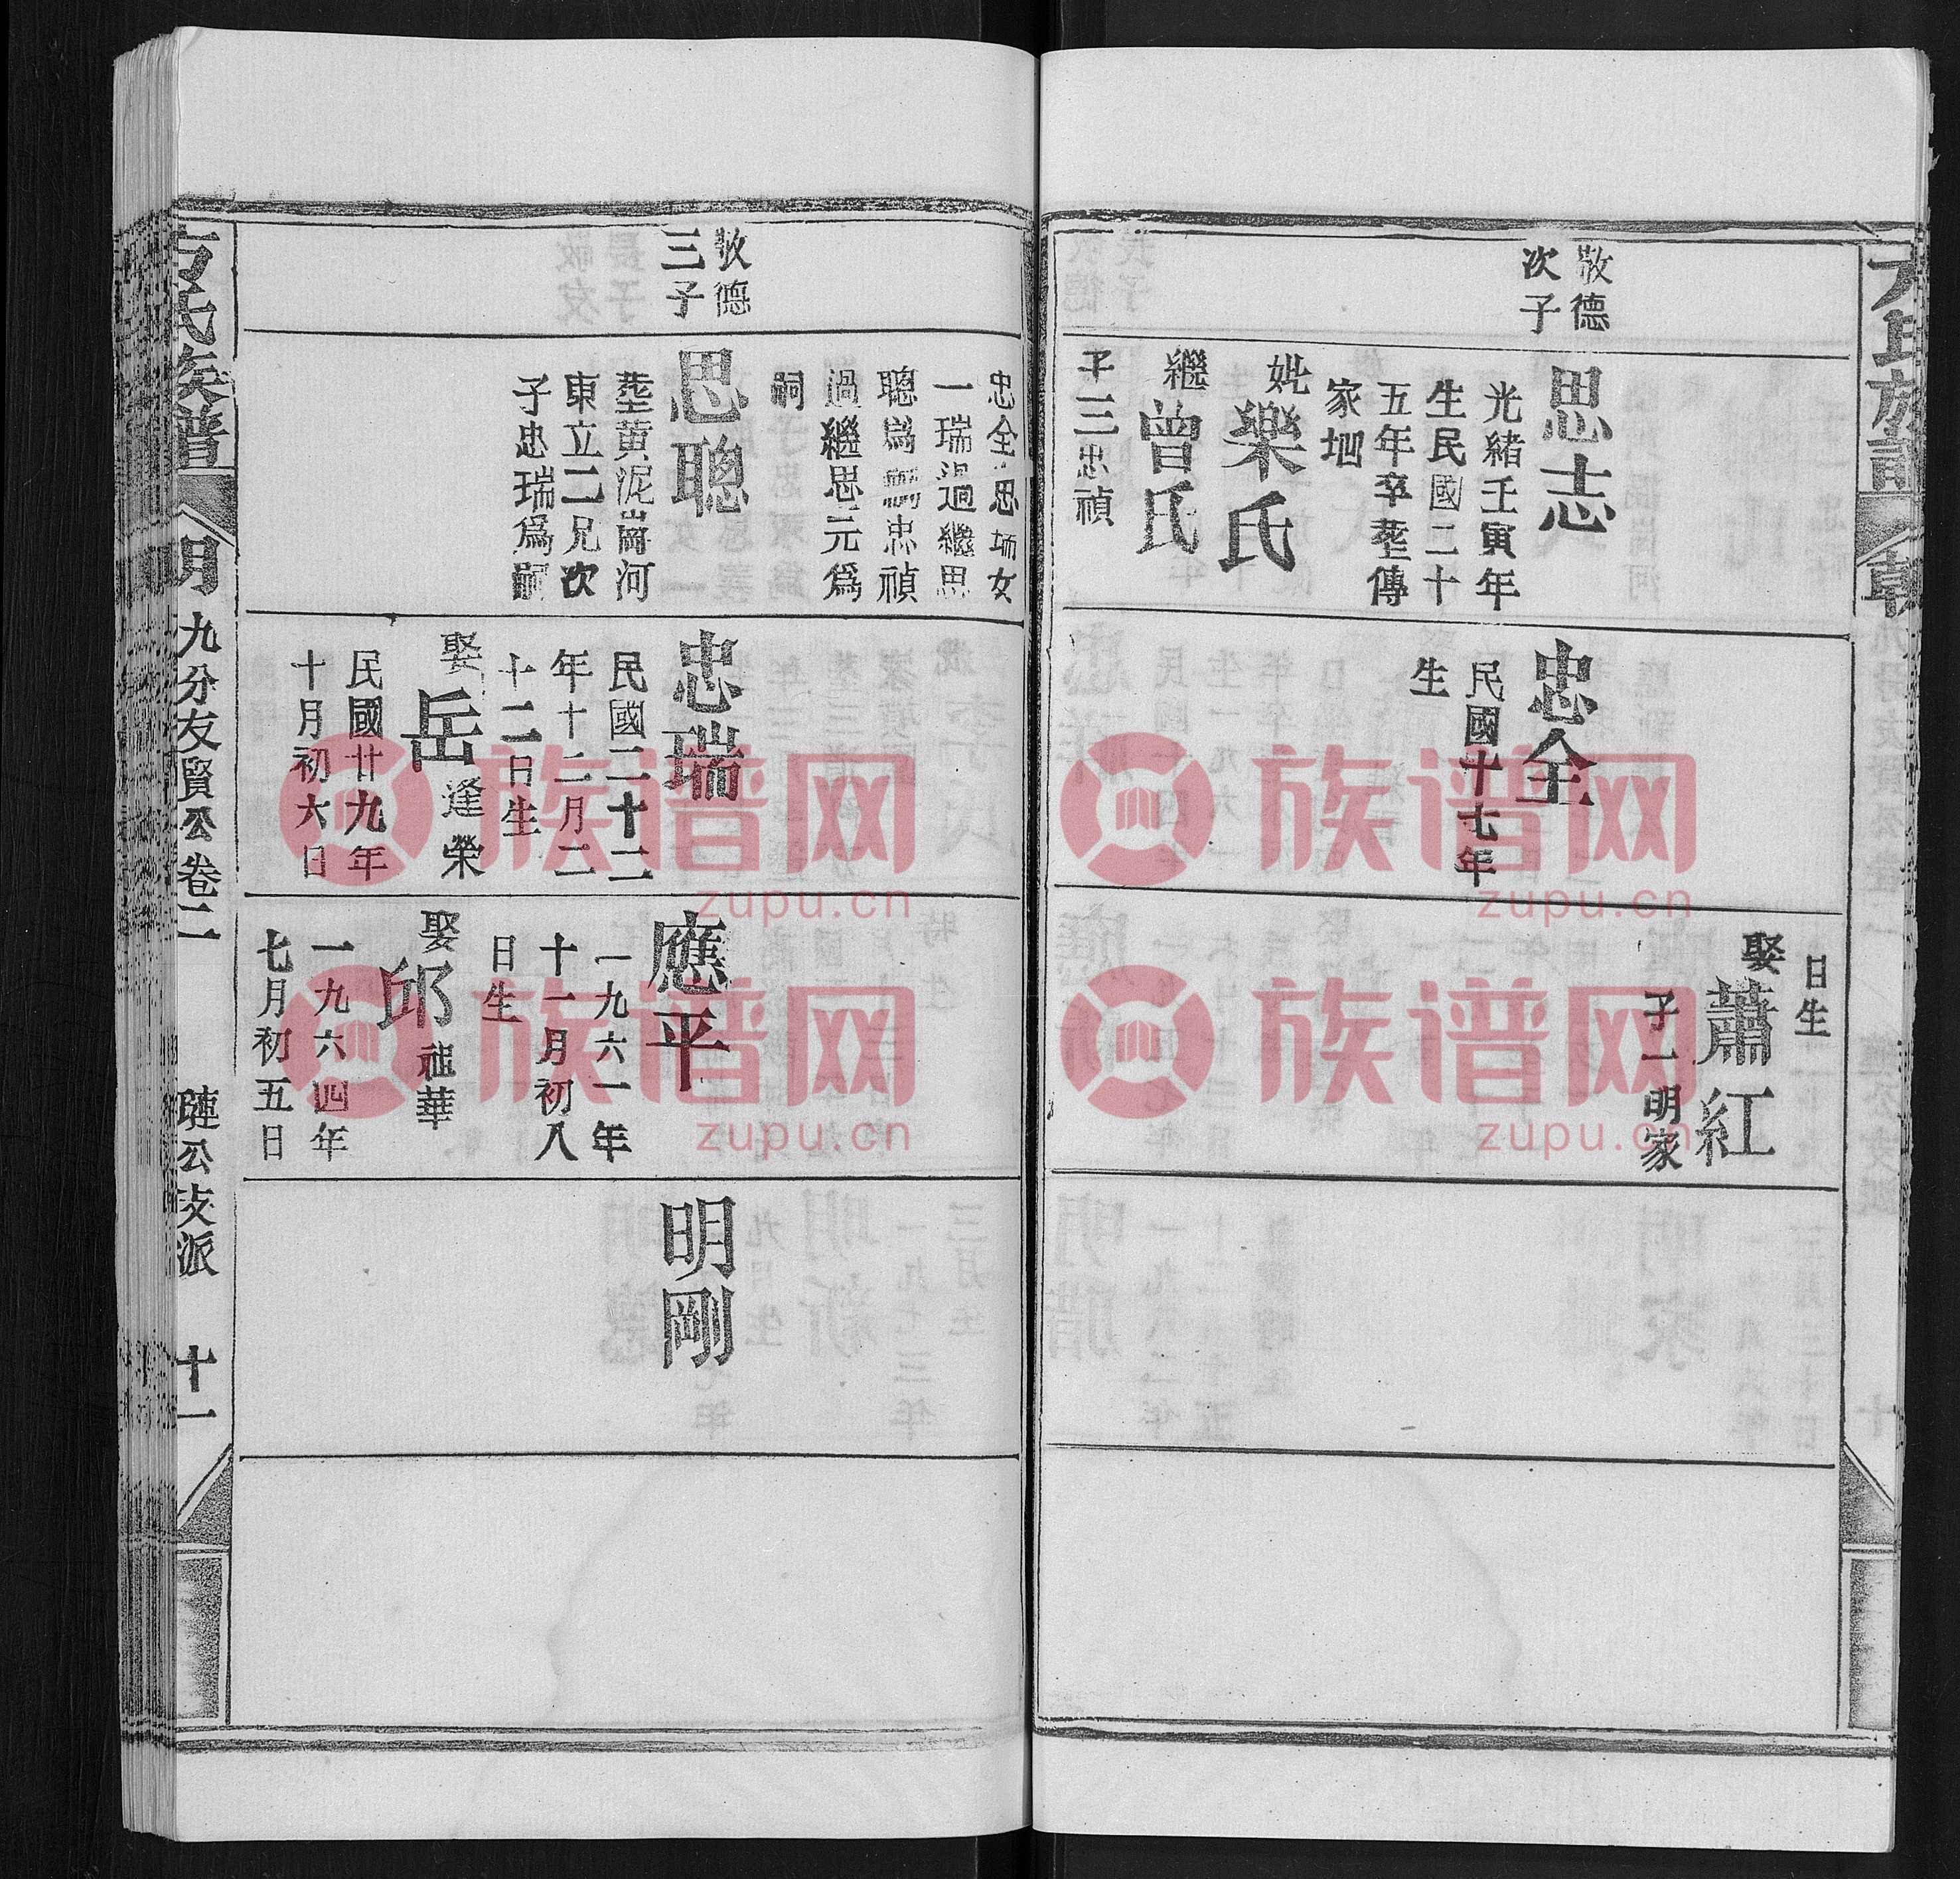 氏族
敬德
次子
思志
光緒壬寅年
生民國二十
五年卒塟傳
家坳
妣樂氏
繼曾氏
子三忠禎
忠全
民國十七年
生
日生
娶蕭紅
子一明家
敬德
三子
忠全 女
一瑞過繼思
聰爲嗣忠禎
過繼思元爲
嗣
思聰
塟黄泥崗河
東立二兄次
子忠瑞爲嗣
忠瑞
民國二十二
年十二月二
十二日生
娶岳逢榮
民國廿九年
十月初六日
應平
一九六一年
十一月初八
日生
娶邱祖華
一九六四年
七月初五日
明剛
氏族譜 明 九分友賢公卷二 璉公支派 十一
族谱网
zupu.cn
族谱网
zupu.cn
族谱网
zupu.cn
族谱网
zupu.cn